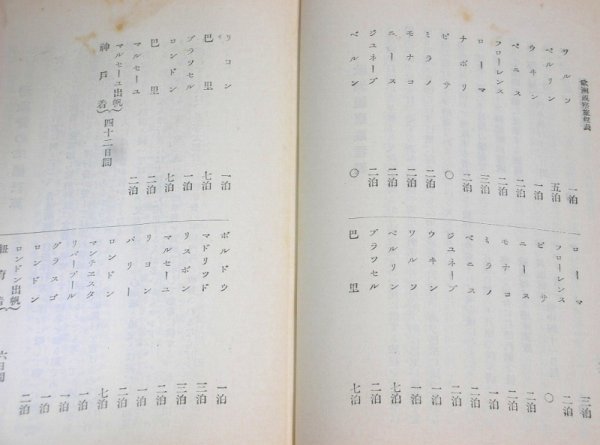 歐洲視察旅程表
ワルソ 一泊
ベルリン 五泊
ウヰン 一泊
ベニス 二泊
フローレンス 二泊
ローマ 三泊
ナポリ 二泊
ピサ 〇
ミラノ 二泊
モナコ 二泊
ニース 二泊
ジュネーブ 二泊
ベルン 〇
ローマ 三泊
フローレンス 二泊
ピサ 〇
ニース 二泊
モナコ 二泊
ミラノ 一泊
ベニス 一泊
ジュネーブ 一泊
ウヰン 二泊
ワルソ 一泊
ベルリン 七泊
ブラツセル 二泊
巴里 七泊
リヨン 一泊
巴里 七泊
ブラツセル 一泊
ロンドン 七泊
巴里 二泊
マルセーユ 二泊
マルセーユ出帆
神戸着 四十二日間
ボルドウ 一泊
マドリツド 三泊
リスボン 三泊
マルセーユ 一泊
リヨン 一泊
パリー 二泊
ロンドン 七泊
マンチエスタ 一泊
リバープール 一泊
グラスゴ 一泊
ロンドン 二泊
ロンドン出帆
紐育着 六日間